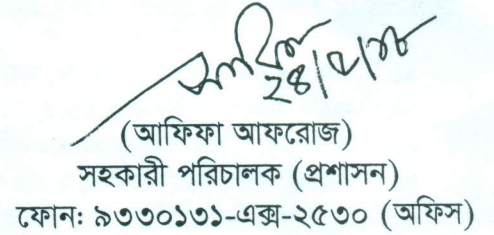 ২৪/৫/১৮
(আফিফা আফরোজ)
সহকারী পরিচালক (প্রশাসন)
ফোন: ৯৩৩০১৩১-এক্স-২৫৩০ (অফিস)